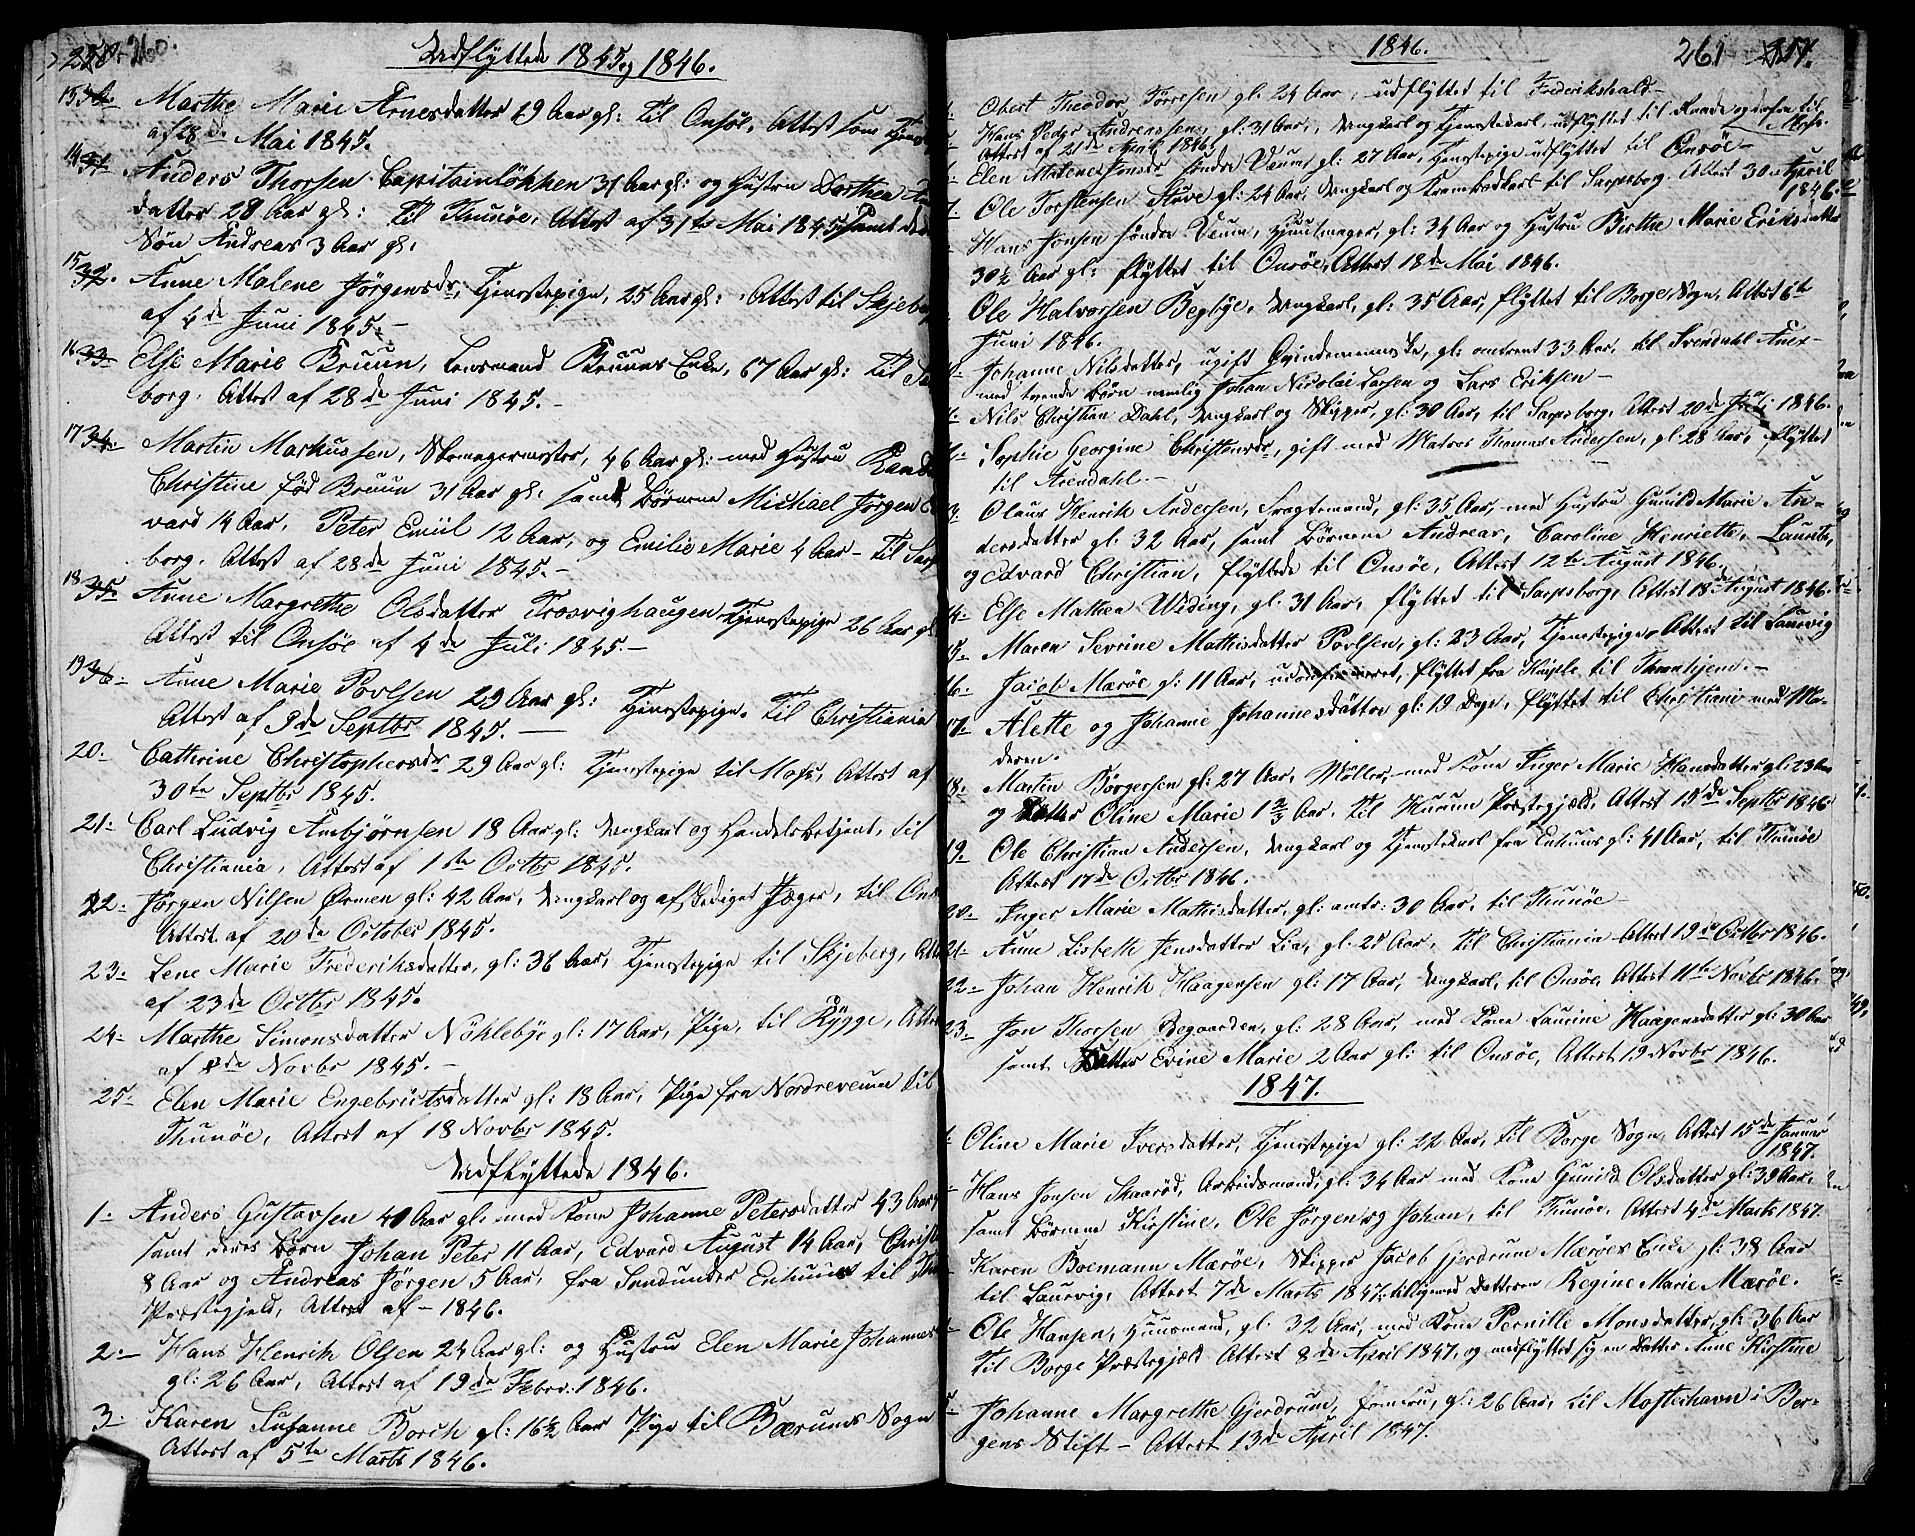 260.
Udflyttede 1845 og 1846.
13 Marthe Marie Arnesdatter 19 Aar gl: til Onsöe, Attest som
af 28de Mai 1845.
14 31 Anders Thorsen Capitainlökken 31 Aar gl: og Hustru Dorthea
datter 28 Aar gl: til Thunöe, Attest af 31te Mai 1845 samt
Sön Andreas 3 Aar gl.
15 32. Anne Malene Jörgensdr, Tjenestepige, 25 Aar gl: Attest til Skjeberg
af 4de Juni 1845. –
16 33 Else Marie Bruun, Lensmand Bruuns Enke, 67 Aar gl: til
borg. Attest af 28de Juni 1845. –
17 34. Martin Markussen, Skomagermester, 46 Aar gl: med Hustru
Christine föd Bruun 31 Aar gl. samt Börnene Michael Jörgen
vard 14 Aar, Peter Emiil 12 Aar, og Emilie Marie 4 Aar – til
borg. Attest af 28de Juni 1845. –
18 35 Anne Margrethe Olsdatter Trosvighaugen Tjenestepige 26 Aar gl
Attest til Onsöe af 4de Juli 1845. –
19 36. Anne Marie Povlsen 29 Aar gl: Tjenestepige. til Christiania
Attest af 9de Septbr 1845. –
20. Cathrine Christophersdr 29 Aar gl: Tjenestepige til Moss, Attest af
30te Septbr 1845.
21. Carl Ludvig Ambjörnsen 18 Aar gl: Ungkarl og Handelsbetjent, til
Christiania, Attest af 1ste Octbr 1845.
22. Jörgen Nilsen Ørmen gl: 42 Aar, Ungkarl og afskediget Jæger, til
Attest af 20de October 1845.
23. Lene Marie Frederiksdatter, gl: 36 Aar, Tjenestepige til Skjeberg,
af 23de Octbr 1845.
24. Marthe Simonsdatter Nöklebye gl: 17 Aar, Pige, til Rygge,
af de Novbr 1845. –
25. Elen Marie Engebrittsdatter gl: 18 Aar, Pige fra Nordreveum til
Thunöe, Attest af 18 Novbr 1845.
Udflyttede 1846.
1. Anders Gustavsen 40 Aar gl. med Kone Johanne Petersdatter 43 Aar
samt deres Börn Johan Peter 11 Aar, Edvard August 14 Aar,
8 Aar og Andreas Jörgen 5 Aar, fra til
Præstegjeld, Attest af – 1846.
2. – Hans Henrik Olsen 24 Aar gl: og Hustru Elen Marie
gl: 26 Aar, Attest af 19de Febr. 1846.
3. Karen Susanne Borch gl: 16½ Aar Pige til Bærums Sogn
Attest af 5te Marts 1846.
1846. 261
Obert Theodor Törresen gl. 24 Aar, udflyttet til Frederikshald –
Hans Peder Andreassen, gl: 31 Aar, Ungkarl og Tjenestekarl, udflyttet til Raade og derfra til
Attest af 21de April 1846. Moss.
Elen Malene Jonsdr söndre Veum gl: 27 Aar, Tjenestepige udflyttet til Onsöe –
7. Ole Torstensen Stuve gl: 24 Aar, Ungkarl og Krambodkarl til Sarpsborg. Attest 30te April
1846.
Hans Jonsen söndre Veum, gl: 34 Aar og Hustru Birthe Marie Eriksdatter
30½ Aar gl: flyttet til Onsöe, Attest 18de Mai 1846.
Ole Halvorsen Begbye, Ungkarl, gl: 35 Aar, flyttet til Borge Sogn, Attest 6te
Juni 1846.
Johanne Nilsdatter, ugift Qvindemenneske, gl: omtrent 33 Aar, til Svendahl Anex –
med tvende Börn nemlig Johan Nicolai Larsen og Lars Eriksen –
Nils Christian Dahl, Ungkarl og Skipper, gl: 30 Aar, til Sarpsborg, Attest 20de Juli 1846.
Sophie Georgine Christensdr, gift med Matros Thomas Andersen, gl. 28 Aar, flyttet
til Arendahl. –
13. Olaus Henrik Andersen, Fragtemand, gl: 35 Aar, med Hustru Gunild Marie An-
dersdatter gl: 32 Aar, samt Börnene Andreas, Caroline Henriette, Laurits,
og Edvard Christian, flyttede til Onsöe, Attest 12te August 1846.
14. Else Mathea Widing, gl. 31 Aar, flyttet til Sarpsborg, Attest 18de August 1846.
15. Maren Sevrine Mathisdatter Povlsen, gl: 23 Aar, Tjenestepige, Attest til Laurvig
16. Jacob Mærøe gl: 11 Aar, uconfirmeret, flyttet fra til Thronhjem. –
17. Alette og Johanne Johannesdatter gl: 19 Dage, flyttet til Christiania med Mo-
deren.
18. Martin Börgersen gl: 27 Aar, Møller, med Kone Inger Marie Hansdatter gl: 23 Aar
og Datter Oline Marie 1⅔ Aar, til Hurum Præstegjeld, Attest 19de Septbr 1846.
19. Ole Christian Andersen, Ungkarl og Tjenestekarl fra Enhuus gl: 41 Aar, til Thunöe
Attest 17de Octbr 1846.
20. Inger Marie Mathisdatter, gl: omtr: 30 Aar, til Thunöe –
21. Anne Lisbeth Jensdatter Lia, gl: 25 Aar, til Christiania Attest 19de Octbr 1846.
22. Johan Henrik Haagensen gl: 17 Aar, Ungkarl, til Onsöe, Attest 11te Novbr 1846.
23. Jon Thorsen Begaarden, gl: 28 Aar, med Kone Laurine Haagensdatter gl: 30 Aar
samt Datter Evine Marie 2 Aar gl: til Onsöe, Attest 19 Novbr 1846.
1847.
Oline Marie Iversdatter, Tjenestepige gl: 22 Aar, til Borge Sogn, Attest 15de Januar
1847.
Hans Jonsen Skaaröd, Arbeidsmand, gl: 34 Aar med Kone Gunild Olsdatter gl: 39 Aar,
samt Börnene Kirstine, Ole Jörgen og Johan, til Thunöe, Attest 4de Marts 1847.
Karen Boemann Mærøe, Skipper Jacob Gjerdrum Mærøes Enke gl: 38 Aar
til Laurvig, Attest 7de Marts 1847. tilligemed Datteren Regine Marie Mærøe.
Ole Hansen, Huusmand, gl: 32 Aar, med Kone Pernille Monsdatter, gl: 36 Aar
til Borge Præstegjeld Attest 8de April 1847, og medflyttet sig en Datter Anne Kirstine
5 Johanne Margrethe Gjerdrum, Jomfru, gl: 26 Aar, til Mosterhavn i Ber-
gens Stift – Attest 13de April 1847.